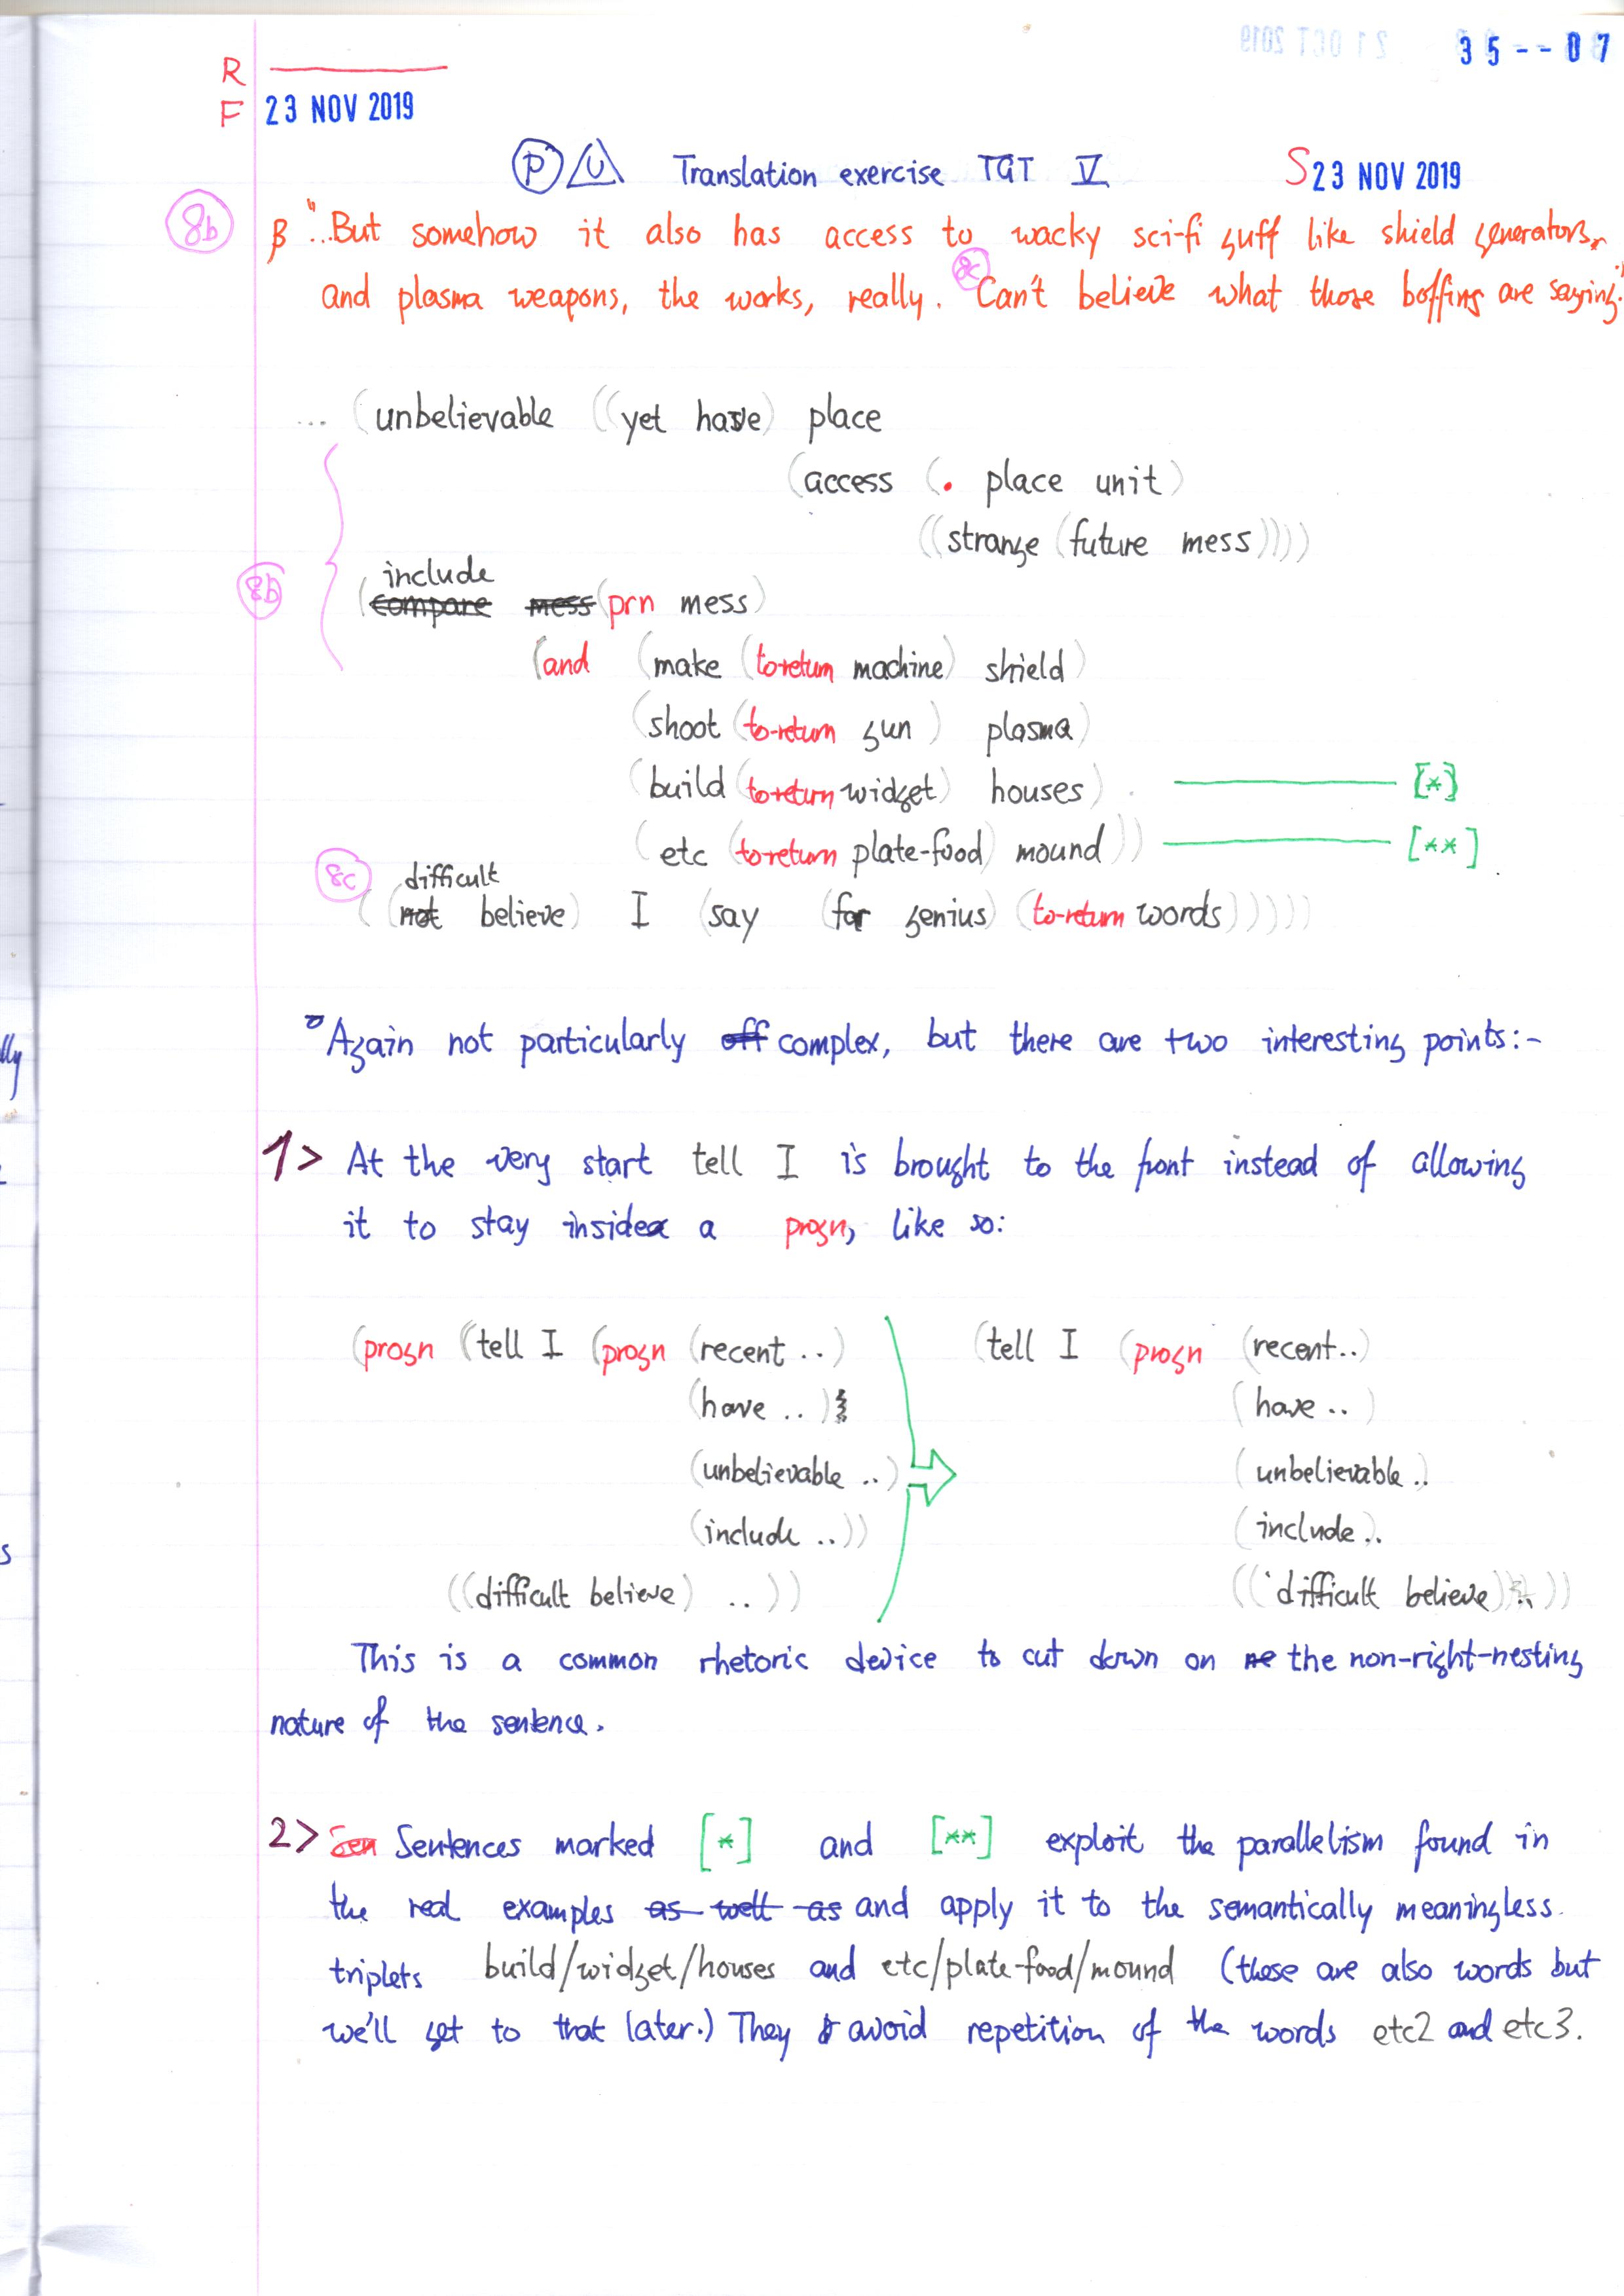 21 OCT 2019 35--07
R
F 23 NOV 2019
P U Translation exercise TGT V S 23 NOV 2019
8b β "...But somehow it also has access to wacky sci-fi guff like shield generators,
and plasma weapons, the works, really. 8c Can't believe what those boffins are saying."
... (unbelievable ((yet have) place
(access (. place unit)
((strange (future mess))))
include
8b (compare mess (prn mess)
(and (make (to-return machine) shield)
(shoot (to-return gun) plasma)
(build (to-return widget) houses) [*]
(etc (to-return plate-food) mound)) [**]
8c difficult
((not believe) I (say (for genius) (to-return words)))))
Again not particularly off complex, but there are two interesting points:-
1> At the very start tell I is brought to the front instead of allowing
it to stay inside a progn, like so:
(progn (tell I (progn (recent ..) (tell I (progn (recent..)
(have ..) (have ..)
(unbelievable ..) (unbelievable ..
(include ..)) (include ..
((difficult believe) ..)) ((difficult believe) ..))
This is a common rhetoric device to cut down on ne the non-right-nesting
nature of the sentence.
2> Sen Sentences marked [*] and [**] exploit the parallelism found in
the real examples as well as and apply it to the semantically meaningless
triplets build/widget/houses and etc/plate-food/mound (these are also words but
we'll get to that later.) They avoid repetition of the words etc2 and etc3.
lly
s